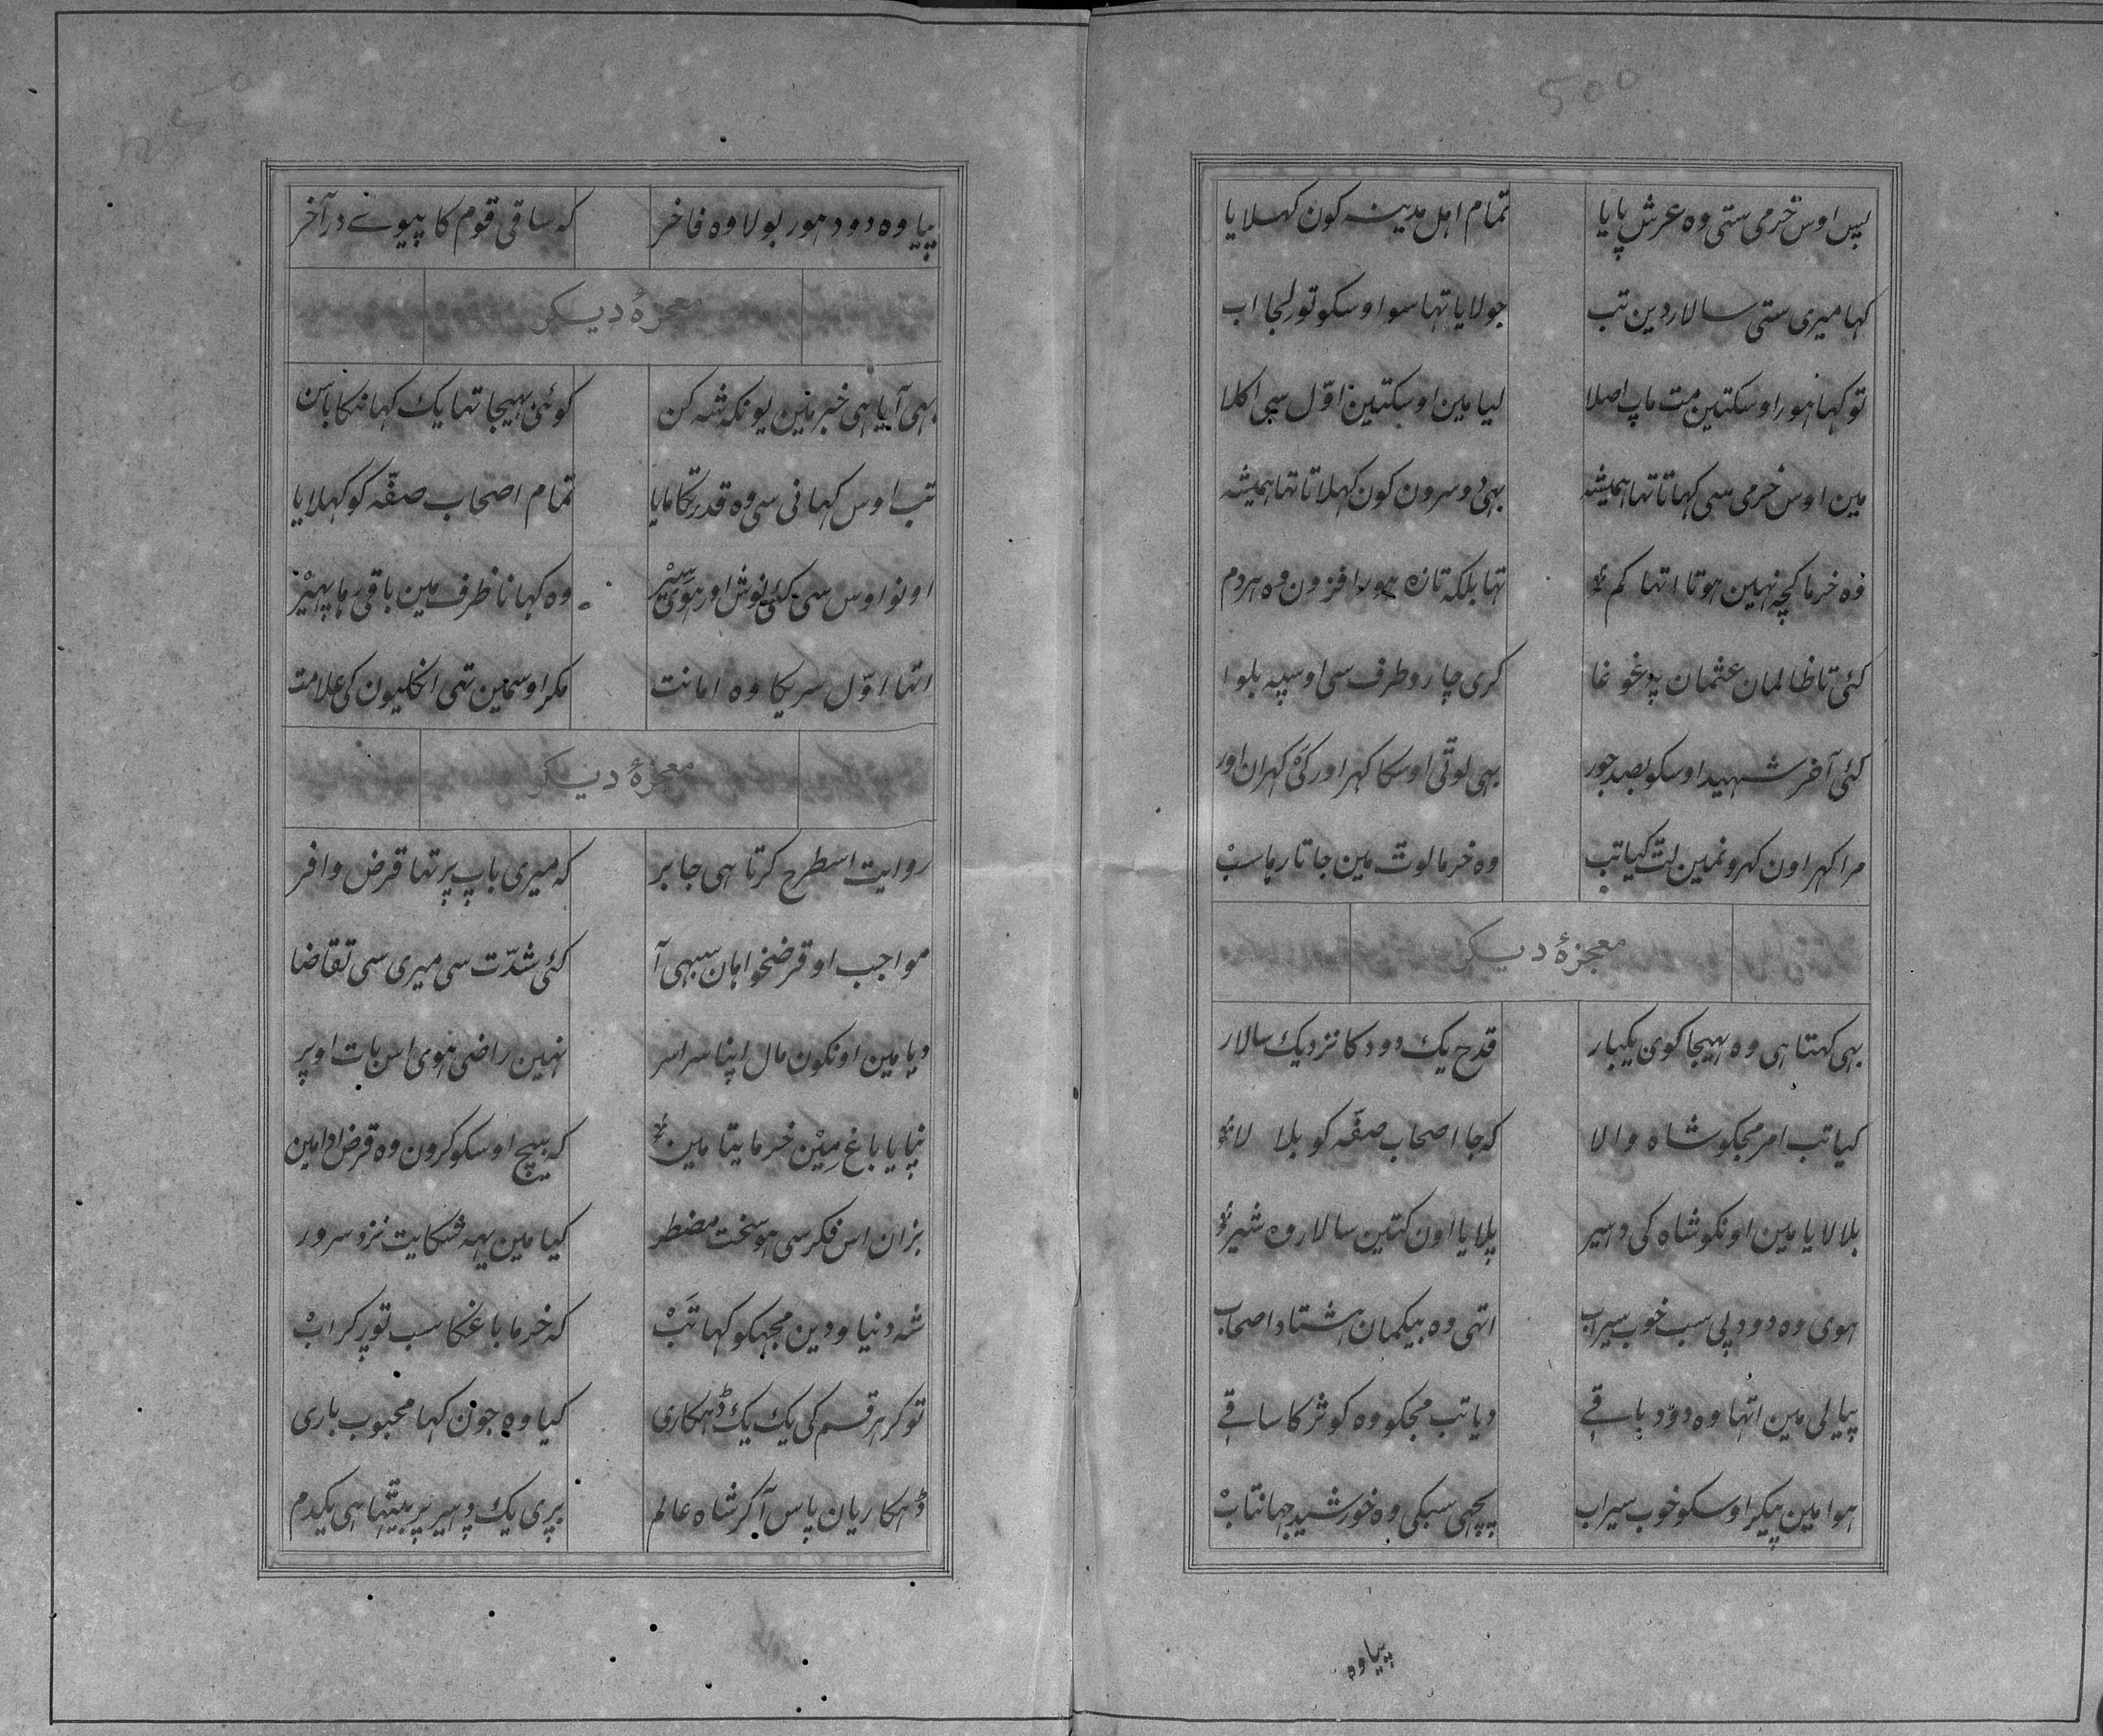 500
پس اوس خرمی ستی وہ عرش پایا تمام اہل مدینہ کون کہلایا
کہا میری ستی سالار دین تب جو لایا تہا سو اوسکو تو لیجا اب
تو کہا ہور اوسکتین مت ماپ اصلا لیا مین اوسکتین اوّل سی اکلا
مین اوس خرمی سی کہاتا تہا ہمیشہ بہی دوسرون کون کہلاتا تہا ہمیشہ
وہ خرما کچہ نہین ہوتا اتہا کم تہا بلکہ تازہ ہور افزون وہ ہردم
کئی تا ظالمان عثمان پہ غوغا کری چارو طرف سی اوسپہ بلوا
کئی آخر شہید اوسکو بصد جور بہی لوتی اوسکا کہر اور کئی کہران اور
مرا کہر اون کہرونمین لت کیا تب وہ خرما لوت مین جاتا رہا سب
معجزۂ دیکر
بہی کہتا ہی وہ بہیجا کوی یکبار قدح یک دود کا نزدیک سالار
کیا تب امر مجکو شاہ والا کہ جا اصحاب صفّہ کو بلا لا
بلا لایا مین اونکو شاہ کی دہیر پلایا اون کتین سالار وہ شیر
ہوی وہ دود پی سب خوب سیراب اتہی وہ بیکمان ہشتاد اصحاب
پیالی مین اتہا وہ دود باقے دیا تب مجکو وہ کوثر کا ساقے
ہوا مین پیکر اوسکو خوب سیراب پچہی سبکی وہ خورشید جہانتاب
پیا وہ
پیا وہ دود ہور بولا وہ فاخر کہ ساقی قوم کا پیوے در آخر
معجزۂ دیکر
بہی آیا ہی خبر مین یونکہ شہ کن کوئی بہیجا تہا یک کہانیکا باسن
تب اوس کہانی سی وہ قدرتکا مایا تمام اصحاب صفّہ کو کہلایا
اونو اوس سی کئی نوش اور ہوی سیر وہ کہانا ظرف مین باقی رہا پہیر
اتہا اوّل سریکا وہ امانت مکر اوسمین تہی انکلیون کی علامت
معجزۂ دیکر
روایت اسطرح کرتا ہی جابر کہ میری باپ پر تہا قرض وافر
مواجب او قرضخواہان سبہی آ کئی شدّت سی میری سی تقاضا
دیا مین اونکون مال اپنا سراسر نہین راضی ہوی اس بات اوپر
نپایا باغ مین خرما یتا مین کہ بیچ اوسکو کرون وہ قرض ادا مین
بزان اس فکر سی ہو سخت مضطر کیا مین یہہ شکایت نزد سرور
شہ دنیا و دین مجہکو کہا تب کہ خرما باغکا سب تور کر اب
تو کر ہر قسم کی یک یک ڈہکاری کیا وہ جون کہا محبوب باری
ڈہکاریان پاس آ کر شاہ عالم بری یک دہیر پر بیتہا ہی یکدم